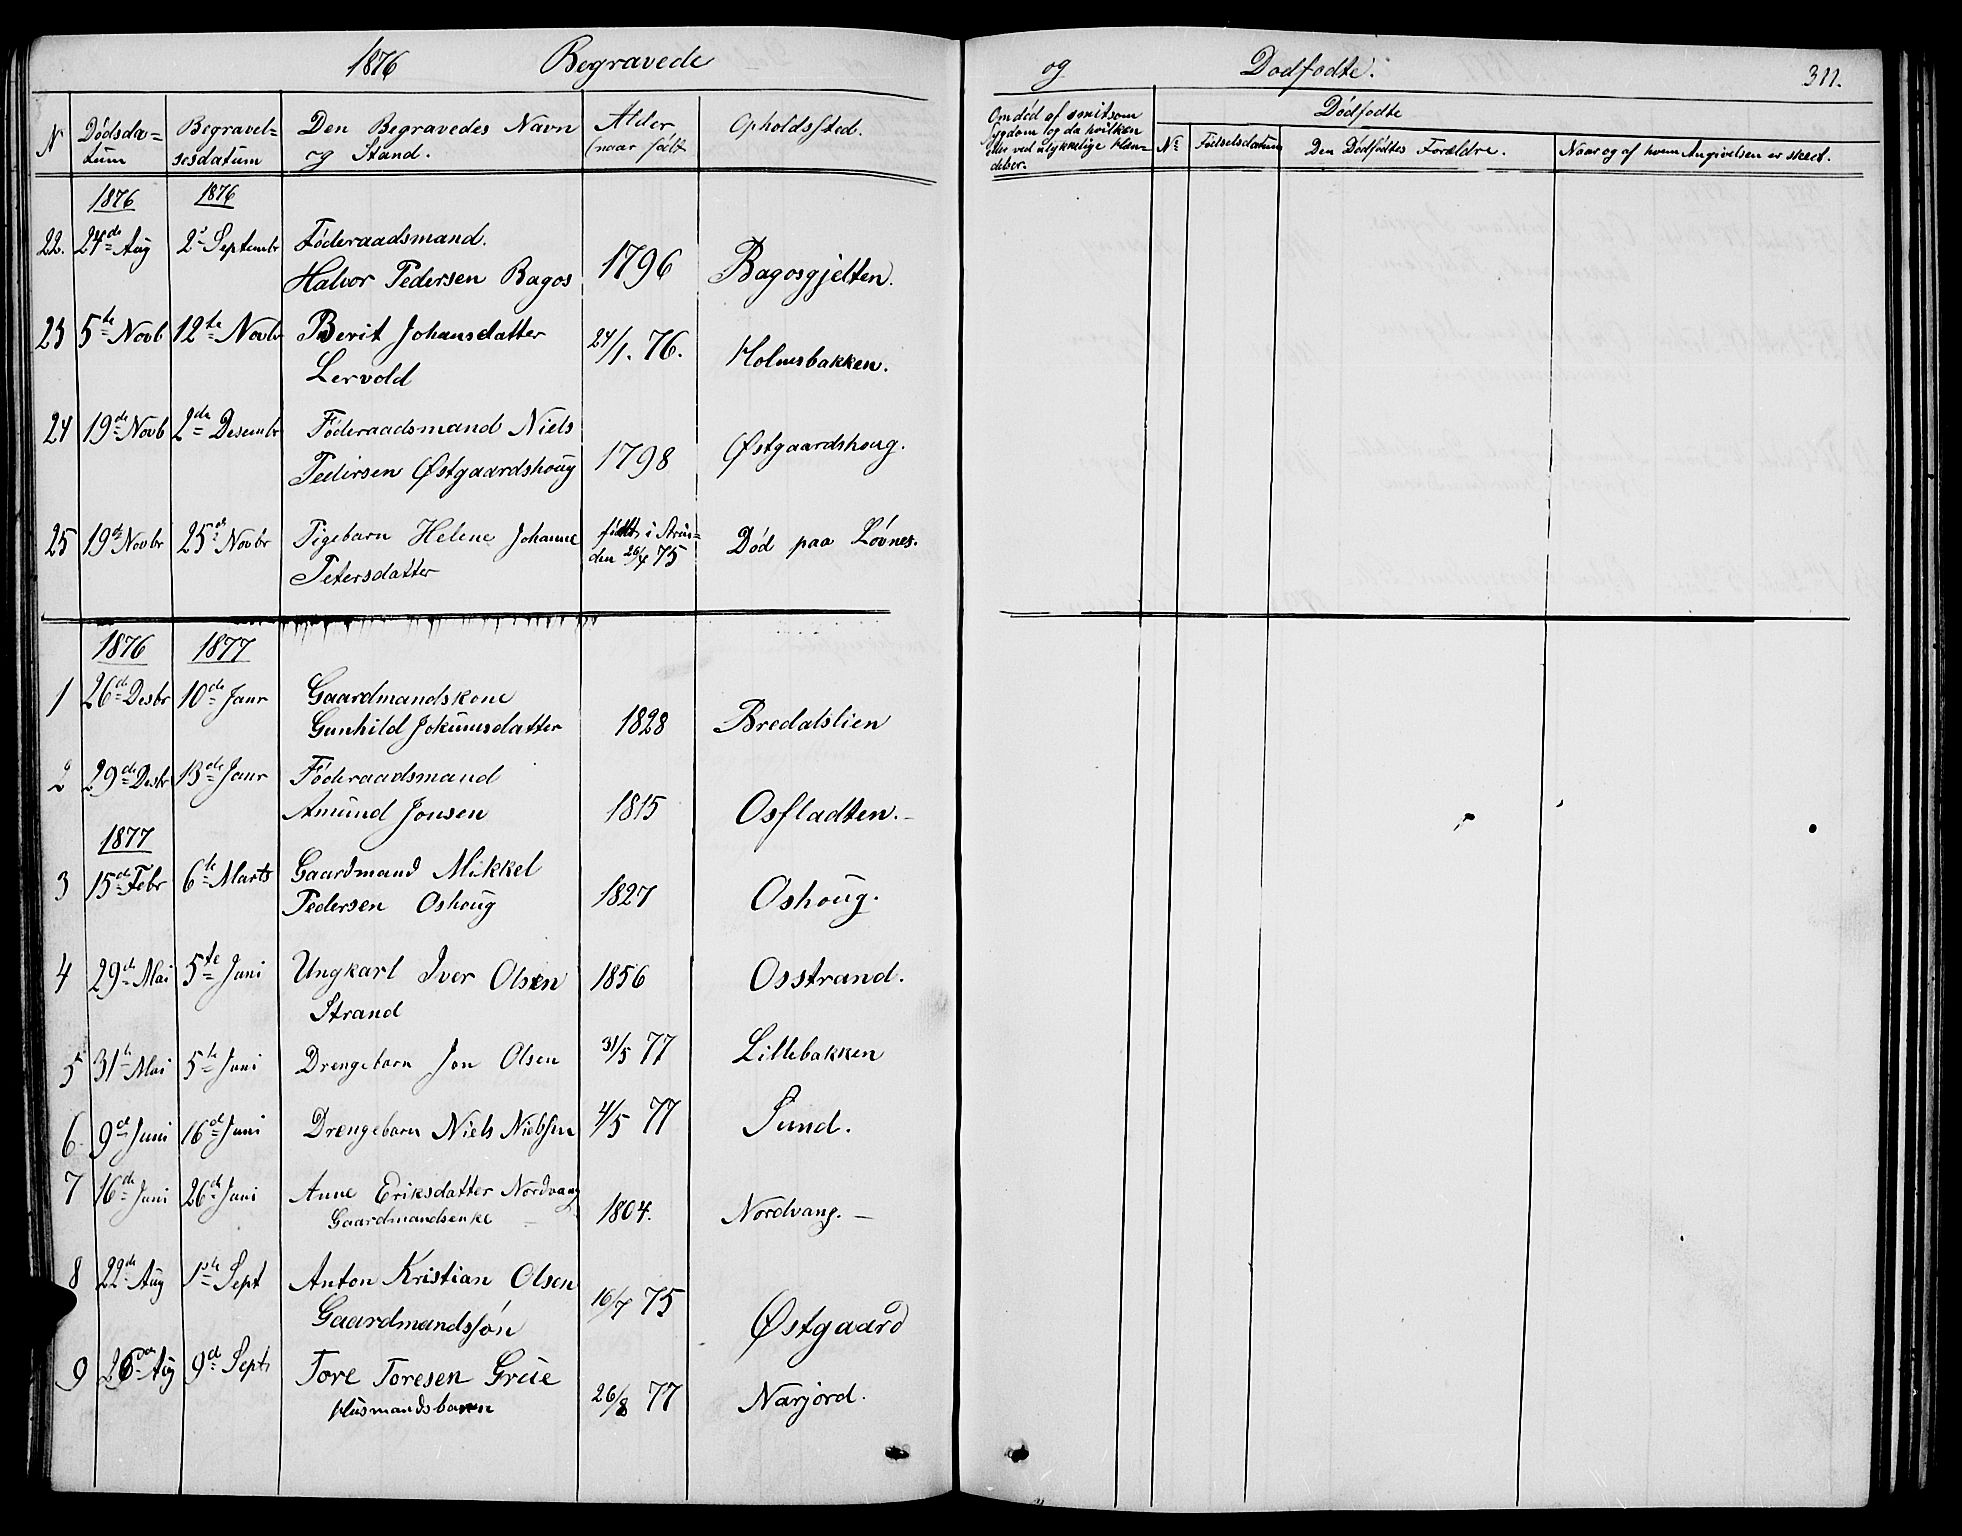 1876 Begravede og Dødfødte. 311.
N
Dødsda=
tum
Begravel=
sesdatum
Den Begravedes Navn
og Stand.
Alder
(naar født
Opholdssted.
Om död af smitsom
Sygdom og da hvilken
eller ved ulykkelige Hæn-
delser.
Dødfødte
No Födselsdatum Den Dødfødtes Forældre. Naar og af hvem Angivelsen er skeet.
1876 1876
22. 24de Aug 2d Septembr Föderaadsmand.
Halvor Pedersen Bagos 1796 Bagosgjelten.
23 5te Novb 12te Novbr Berit Johansdatter 24/1. 76. Holmsbakken.
Lervold
24 19de Novb 2de Desembr Föderaadsmand Niels
Pedersen Østgaardshoug 1798 Østgaardshoug.
25 19d Novbr 25d Novbr Pigebarn Helene Johanne født i Strin=
den 26/4 75 Död paa Lövnes.
Petersdatter
1876 1877
1 26de Desbr 10de Janr Gaardmandskone
Gunhild Jokumsdatter 1828 Bredalslien
2 29de Desbr 13de Janr Föderaadsmand
Amund Jonsen 1815 Osfladten.
1877
3 15d Febr 6te Marts Gaardmand Mikkel
Pedersen Oshoug 1827 Oshoug.
4 29d Mai 5te Juni Ungkarl Iver Olsen 1856 Osstrand.
Strand
5 31te Mai 5te Juni Drengebarn Jon Olsen 31/5 77 Lillebakken
6. 9d Juni 16d Juni Drengebarn Niels Nielsen 4/5 77 Sund.
7 16de Juni 26d Juni Anne Eriksdatter Nordvang
Gaardmandsenke 1804. Nordvang.
8 22de Aug 1ste Sept Anton Kristian Olsen
Gaardmandssön 16/7 75 Østgaard
9 26de Aug 9d Septr Tore Toresen Grue
Husmandsbarn 26/8 77 Narjord.